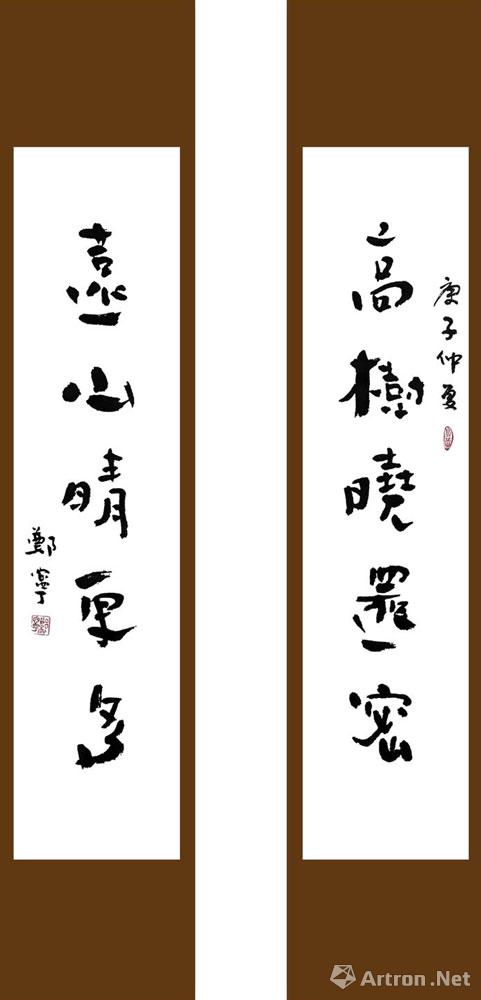 庚子仲夏
高樹曉還密
遠山晴更多
鄭寧
Artron.Net